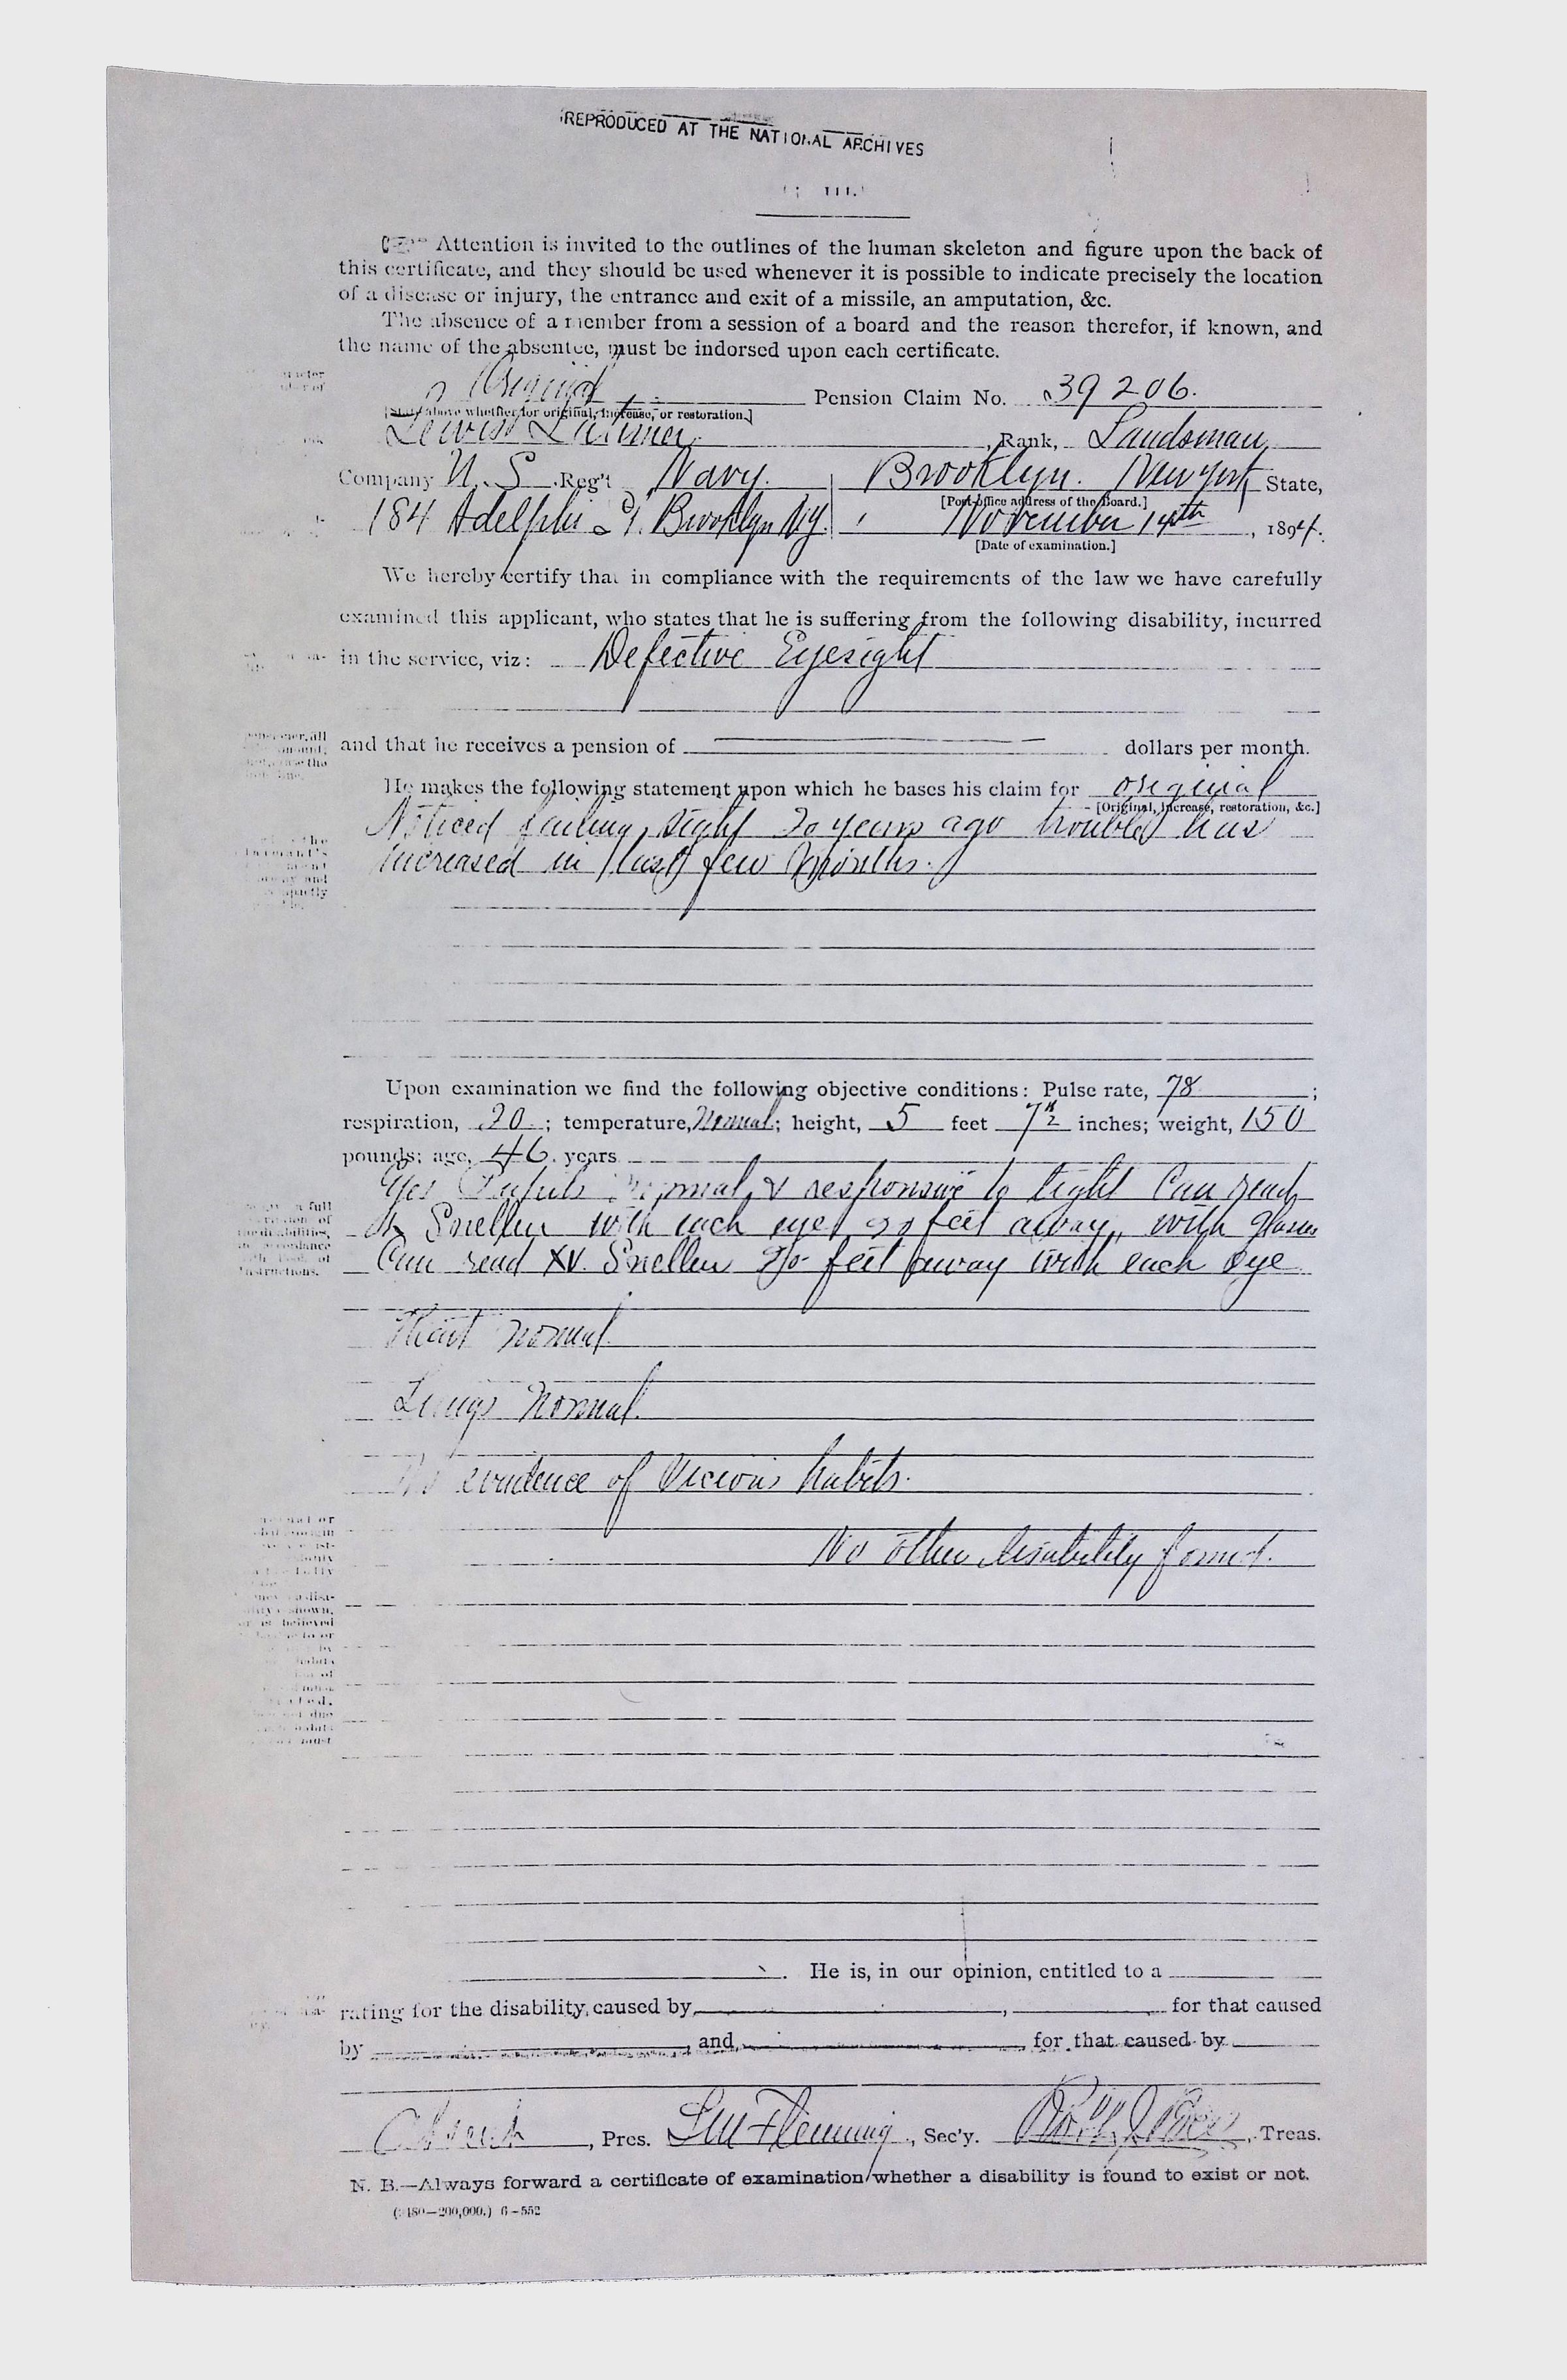 REPRODUCED AT THE NATIONAL ARCHIVES
Attention is invited to the outlines of the human skeleton and figure upon the back of
this certificate, and they should be used whenever it is possible to indicate precisely the location
of a disease or injury, the entrance and exit of a missile, an amputation, &c.
The absence of a member from a session of a board and the reason therefor, if known, and
the name of the absentee, must be indorsed upon each certificate.
Original Pension Claim No. 39206.
[State above whether for original, increase, or restoration.]
Lewis Latimer, Rank, Landsman,
Company U. S. Reg't Navy. Brooklyn. New York State,
[Post-office address of the Board.]
184 Adelphi St. Brooklyn N.Y. November 14th, 1894.
[Date of examination.]
We hereby certify that in compliance with the requirements of the law we have carefully
examined this applicant, who states that he is suffering from the following disability, incurred
in the service, viz: Defective Eyesight
and that he receives a pension of dollars per month.
He makes the following statement upon which he bases his claim for original
[Original, increase, restoration, &c.]
Noticed failing sight 20 years ago trouble has
increased in last few months.
Upon examination we find the following objective conditions: Pulse rate, 78;
respiration, 20; temperature, Normal; height, 5 feet 7½ inches; weight, 150
pounds; age, 46 years
Pupils normal & responsive to light Can read
Snellen with each eye feet away, with glasses
Can read XV. Snellen feet away with each eye
Heart normal.
Lungs Normal.
No evidence of Vicious habits.
No other disability found.
He is, in our opinion, entitled to a
rating for the disability caused by, for that caused
by, and, for that caused by
, Pres. Fleming, Sec'y. , Treas.
N. B.—Always forward a certificate of examination whether a disability is found to exist or not.
6-552